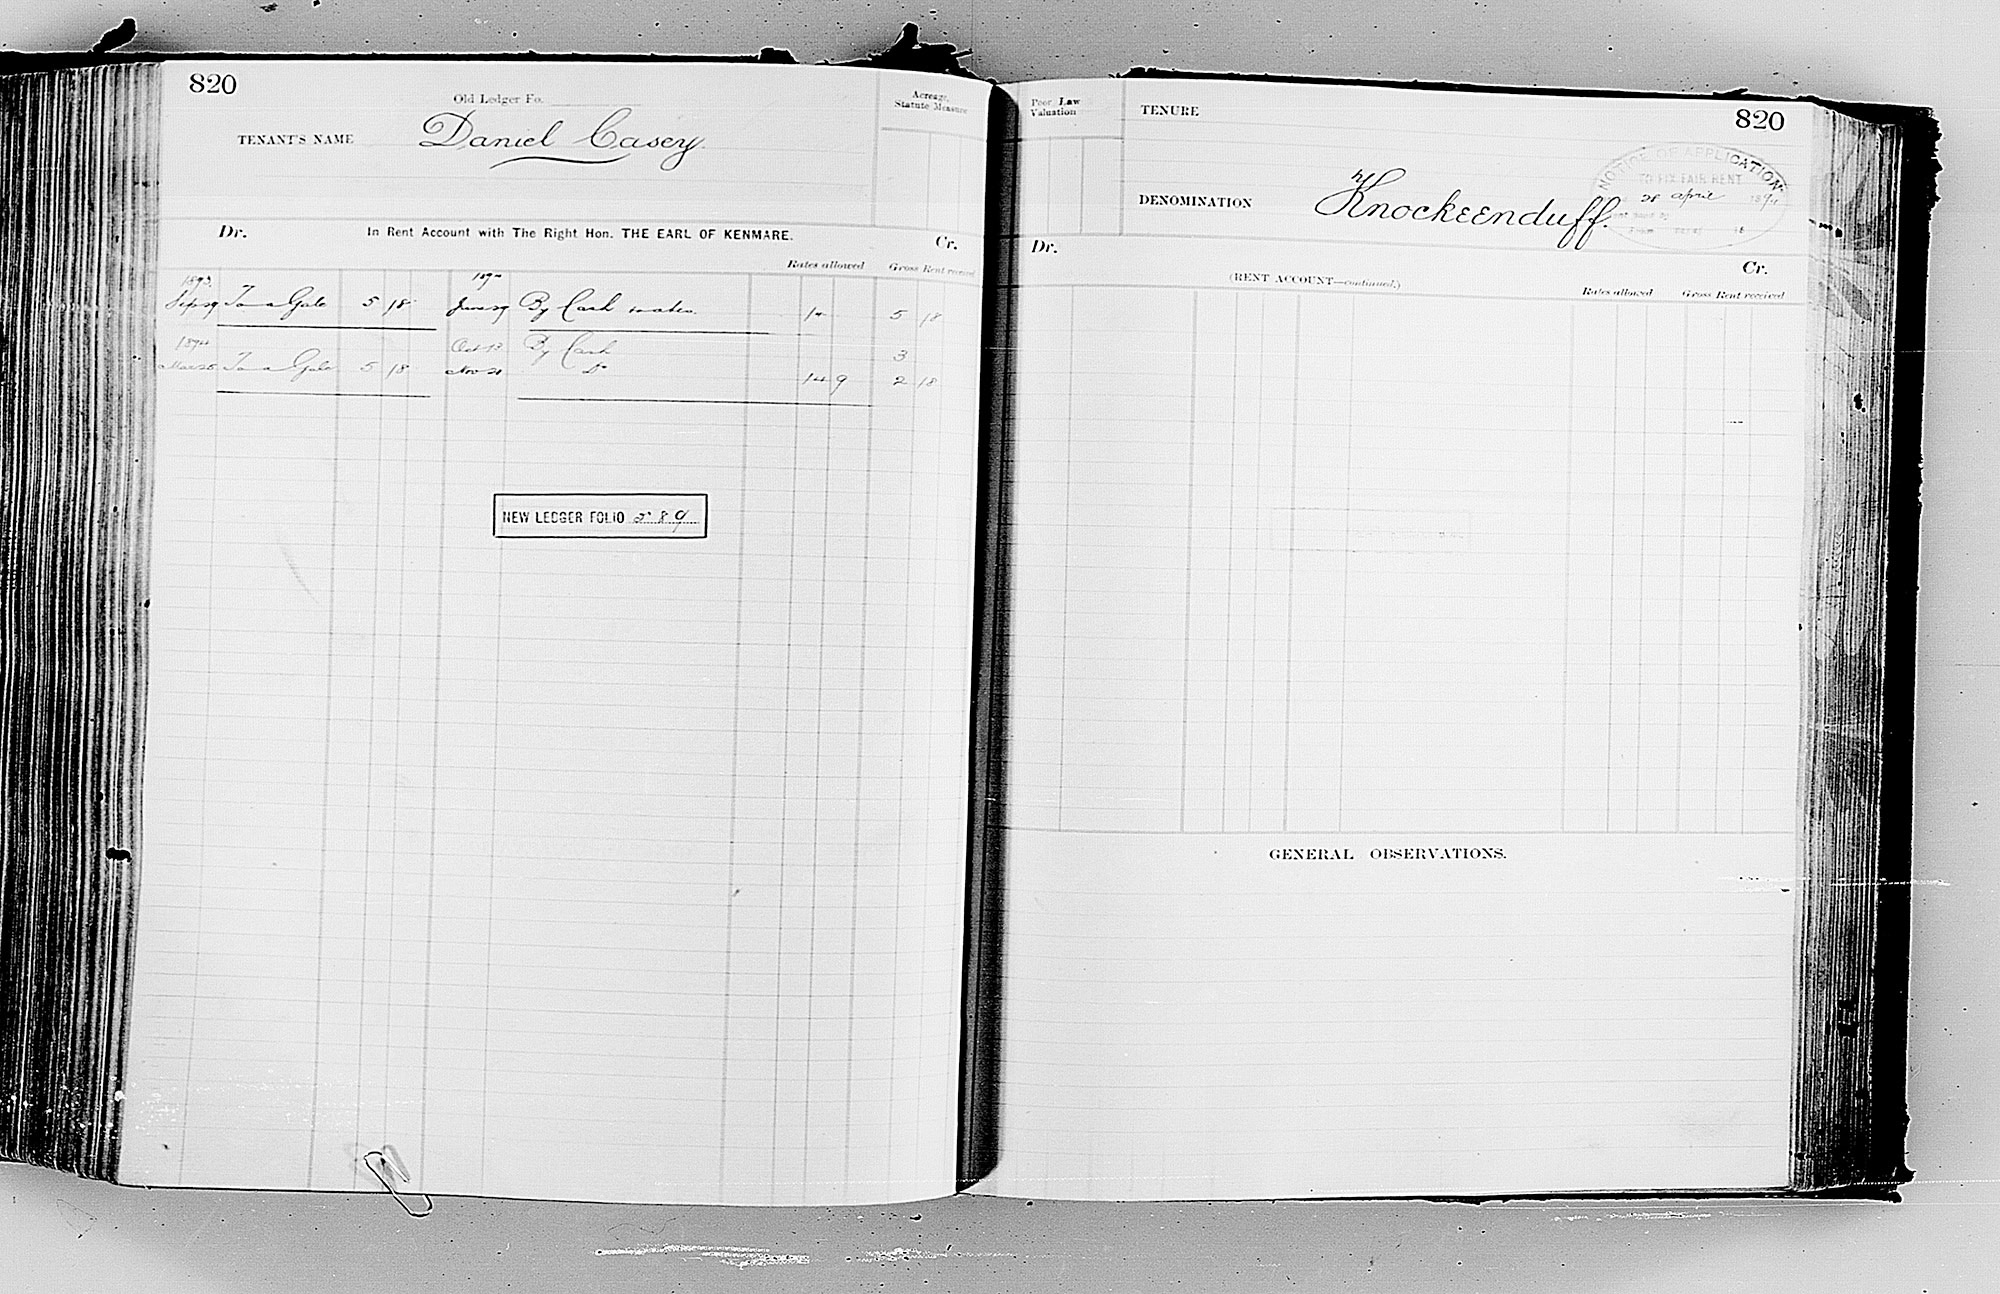 820
Old Ledger Fo.
TENANT'S NAME Daniel Casey
Acreage, Statute Measure
Dr. In Rent Account with The Right Hon. THE EARL OF KENMARE. Cr.
Rates allowed Gross Rent received
1893 1894
Sep 29 To a Gale 5 18 June 29 By Cash 14 5 18
1894 Oct 13 By Cash 3
Mar 25 To a Gale 5 18 Nov 21 Do 14 9 2 18
NEW LEDGER FOLIO 589
Poor Law Valuation
TENURE
820
NOTICE OF APPLICATION
TO FIX FAIR RENT
28 April 1894
DENOMINATION Knockeenduff.
Dr. Cr.
(RENT ACCOUNT—continued.)
Rates allowed Gross Rent received
GENERAL OBSERVATIONS.